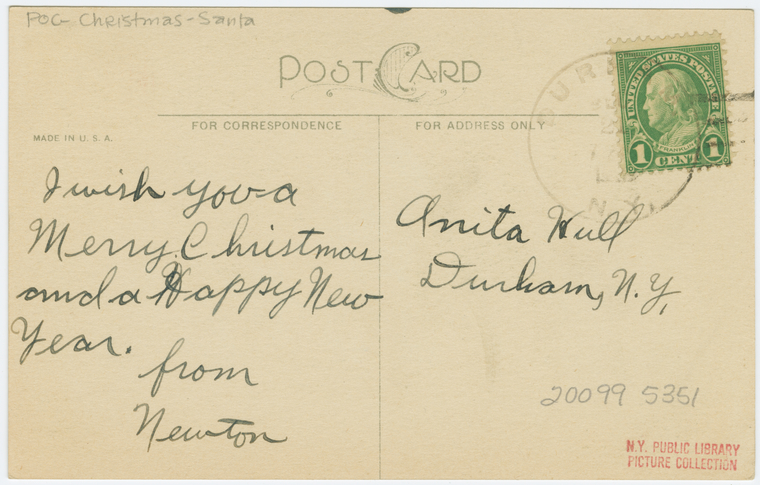 POG-Christmas-Santa
POST CARD
FOR CORRESPONDENCE
FOR ADDRESS ONLY
MADE IN U. S. A.
I wish you a
Merry Christmas
and a Happy New
Year.
from
Newton
UNITED STATES POSTAGE
FRANKLIN
1 CENT 1
N.Y.
Anita Hull
Durham, N.Y.
20099 5351
N.Y. PUBLIC LIBRARY
PICTURE COLLECTION